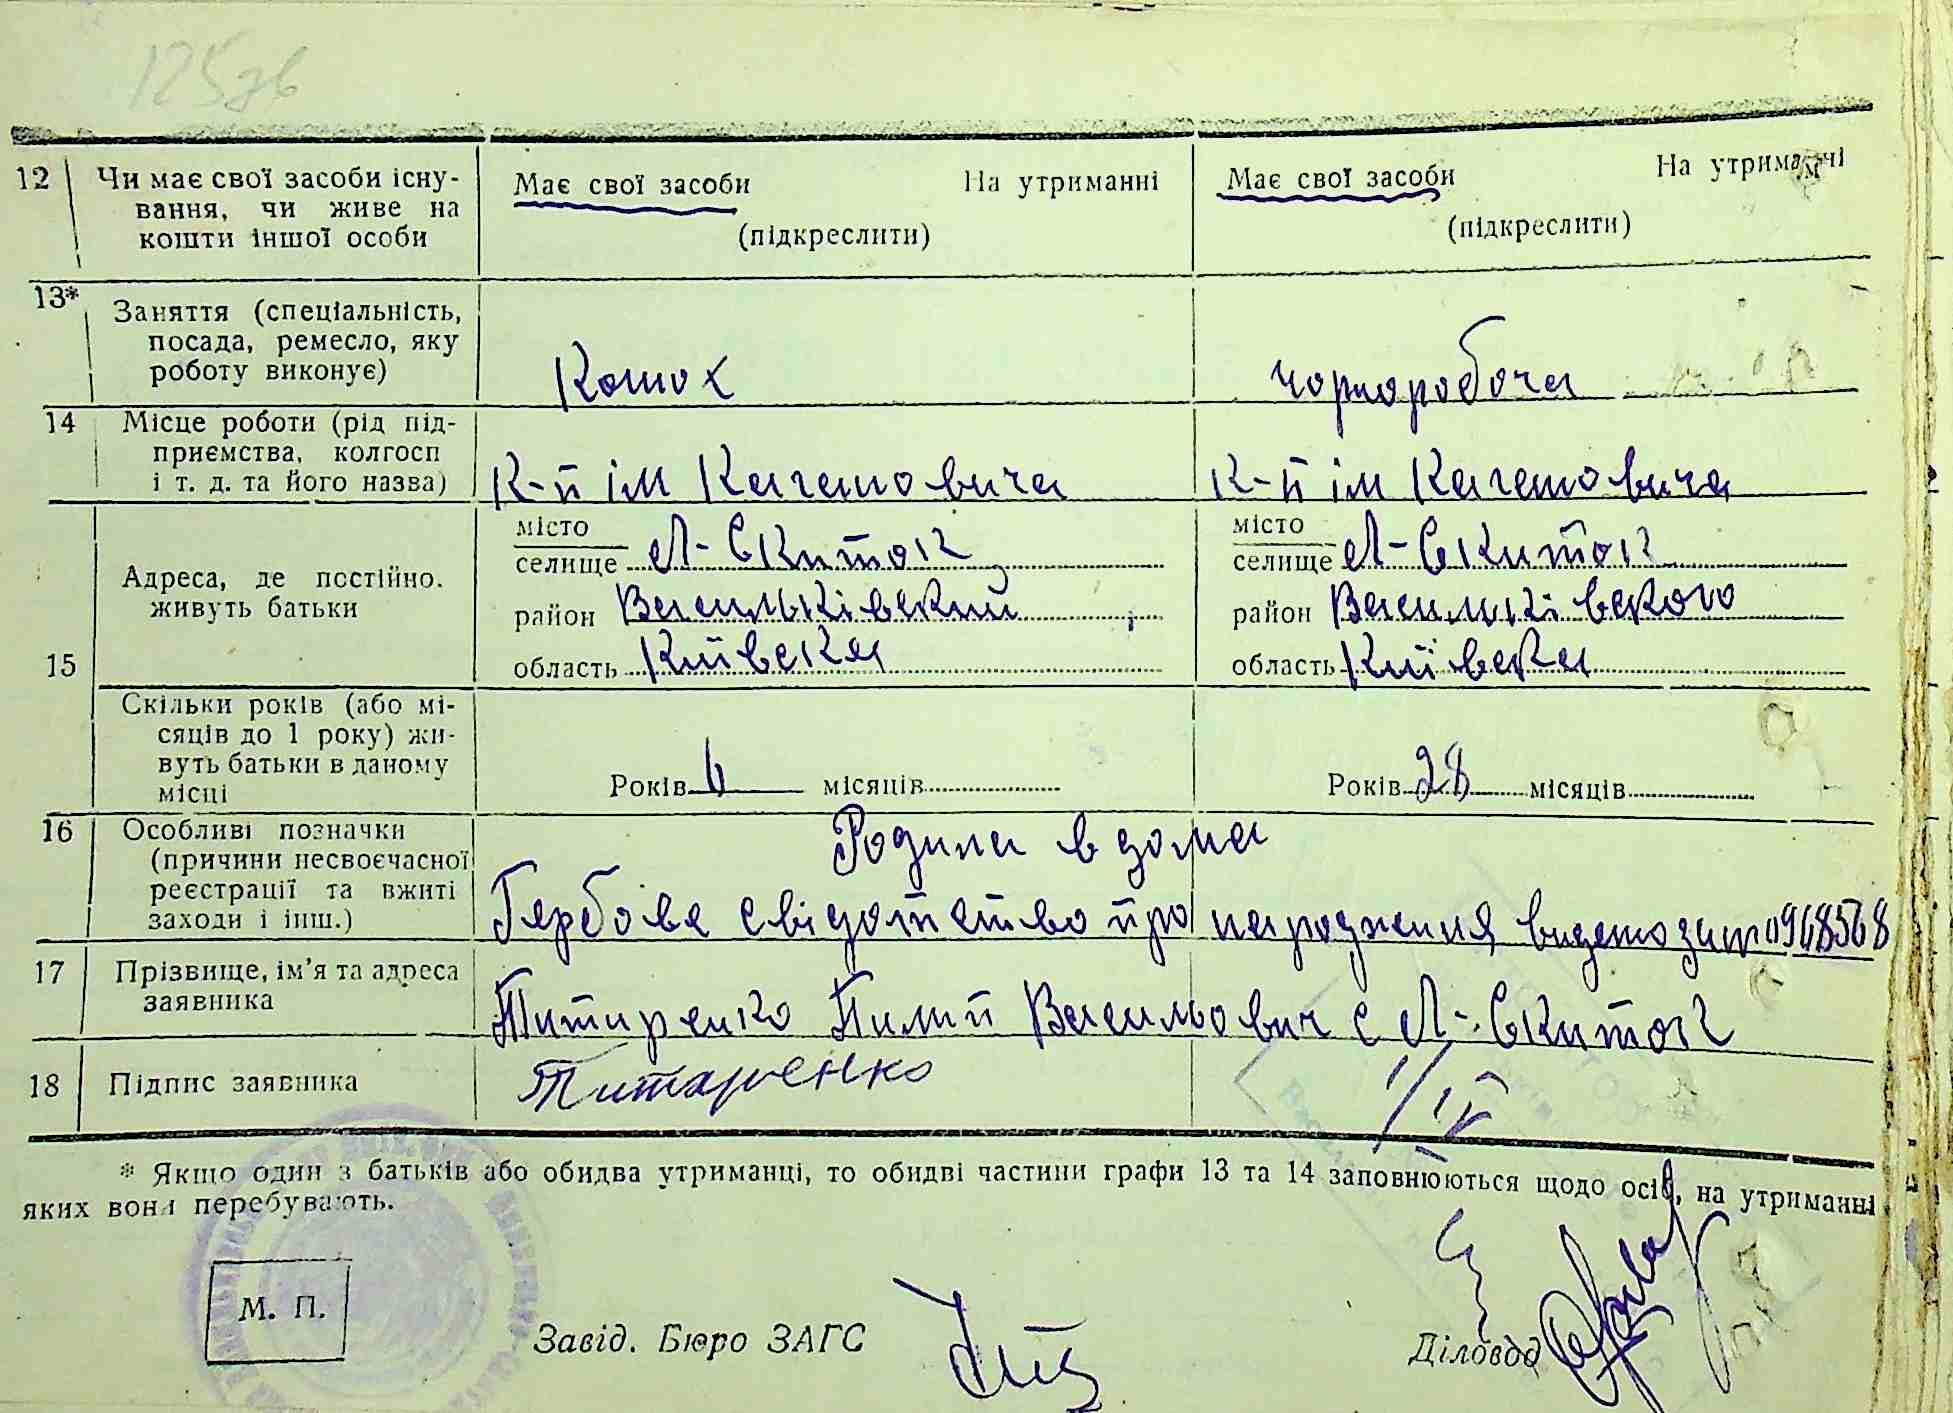 125зв
12 Чи має свої засоби існу-
вання, чи живе на
кошти іншої особи
Має свої засоби На утриманні
(підкреслити)
Має свої засоби На утриманні
(підкреслити)
13* Заняття (спеціальність,
посада, ремесло, яку
роботу виконує)
Конюх
чорноробоча
14 Місце роботи (рід під-
приємства, колгосп
і т. д. та його назва)
К-п ім Кагановича
К-п ім Кагановича
15 Адреса, де постійно
живуть батьки
місто
селище Л-Скиток
район Васильківський
область Київська
місто
селище Л-Скиток
район Васильківского
область Київска
Скільки років (або мі-
сяців до 1 року) жи-
вуть батьки в даному
місці
Років 6 місяців
Років 28 місяців
16 Особливі позначки
(причини несвоєчасної
реєстрації та вжиті
заходи і інш.)
Родила вдома
Гербове свідотство про народження видано за № 0968568
17 Прізвище, ім'я та адреса
заявника
Титаренко Пилип Васильович с Л-Скиток
18 Підпис заявника
Титаренко
1/IV
* Якщо один з батьків або обидва утриманці, то обидві частини графи 13 та 14 заповнюються щодо осіб, на утриманні
яких вони перебувають.
М. П.
Завід. Бюро ЗАГС
Діловод